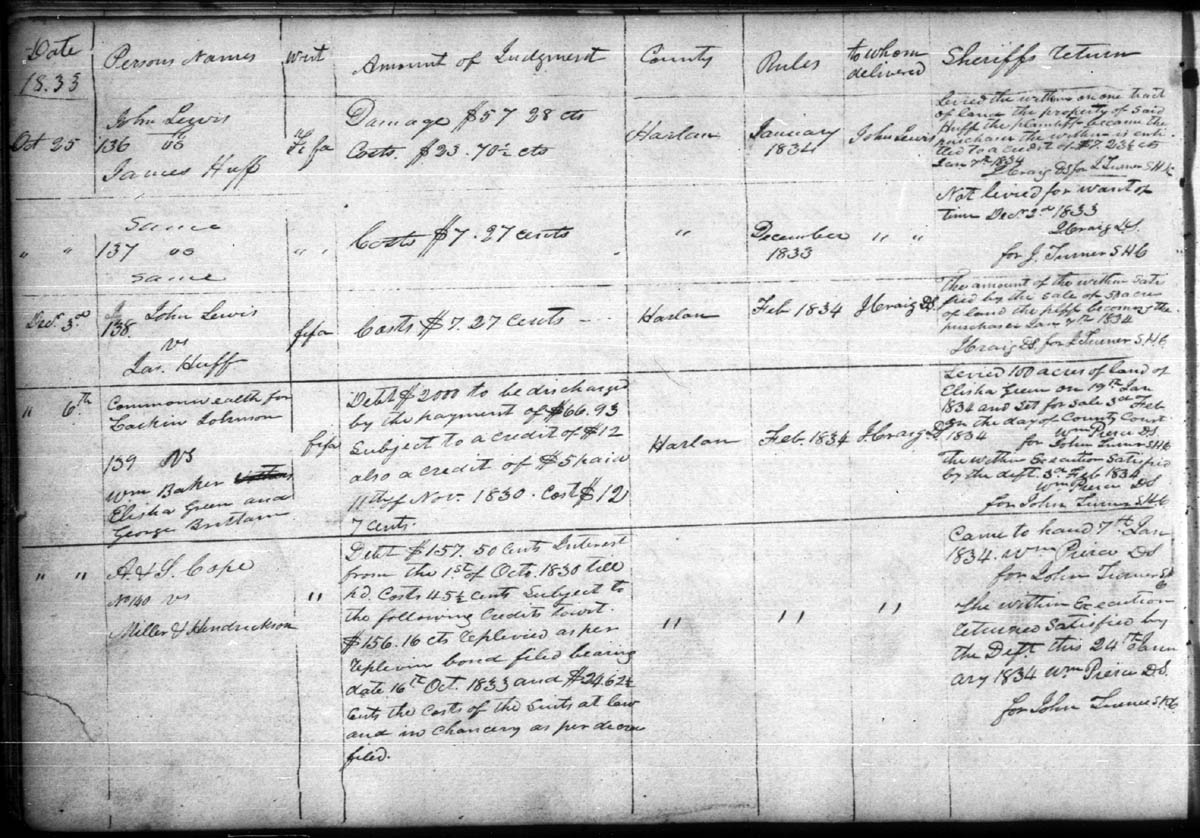 Date
1833
Persons Names
Writ
Amount of Judgment
County
Rules
to whom
delivered
Sheriffs return
Oct 25
John Lewis
136 vs
James Huff
Fifa
Damage $57 28 cts
Costs. $23. 70½ cts
Harlan
January
1834
John Lewis
Levied the within on one tract
of land the property of said
Huff the plaintiff became the
purchaser the within is enti
tled to a credit of $7.23½ cts
Jan 7th 1834
J Craig DS for J Turner S.H.C
" "
Same
137 vs
Same
" "
Costs $7.27 cents
"
December
1833
" "
Not levied for want of
time Decr. 3rd 1833
J Craig D.S.
for J. Turner S H C
Decr. 3rd
138. John Lewis
vs
Jas. Huff
fifa
Costs $7.27 cents
Harlan
Feb 1834
J Craig D.S.
The amount of the within satis
fied by the sale of 50 acres
of land the plff becoming the
purchaser Jan 7th 1834
J Craig DS. for J Turner S.H.C
" 6th
Commonwealth for
Larkin Johnson
139 vs
Wm Baker
Elisha Green and
George Brittain
fifa
Debt $2000 to be discharged
by the payment of $66.93
Subject to a credit of $12
also a credit of $5 paid
11th of Nov. 1830. Cost $12
7 cents.
Harlan
Feb. 1834
J Craig D
Levied 100 acres of land of
Elisha Green on 19th Jan
1834 and set for sale 3rd Feb
on the day of County Court
1834 Wm Pierce DS
for John Turner S.H.C
The within Execution Satisfied
by the deft. 3rd Feb 1834
Wm Pierce DS
for John Turner S.H.C
" "
A & S. Cope
No 140 vs
Miller & Hendrickson
"
Debt $157. 50 Cents Interest
from the 1st of Octo. 1830 till
pd. Costs 45½ Cents Subject to
the following Credits towit.
$156.16 cts replevied as per
replevin bond filed bearing
date 16th Oct. 1833 and $24 62½
Cents the costs of the Suits at law
and in Chancery as per decree
filed.
"
"
"
Came to hand 7th Jan
1834. Wm Pierce DS
for John Turner S H
C
The within Execution
returned satisfied by
the Deft this 24th Janu
ary 1834 Wm Pierce D.S.
for John Turner S H C